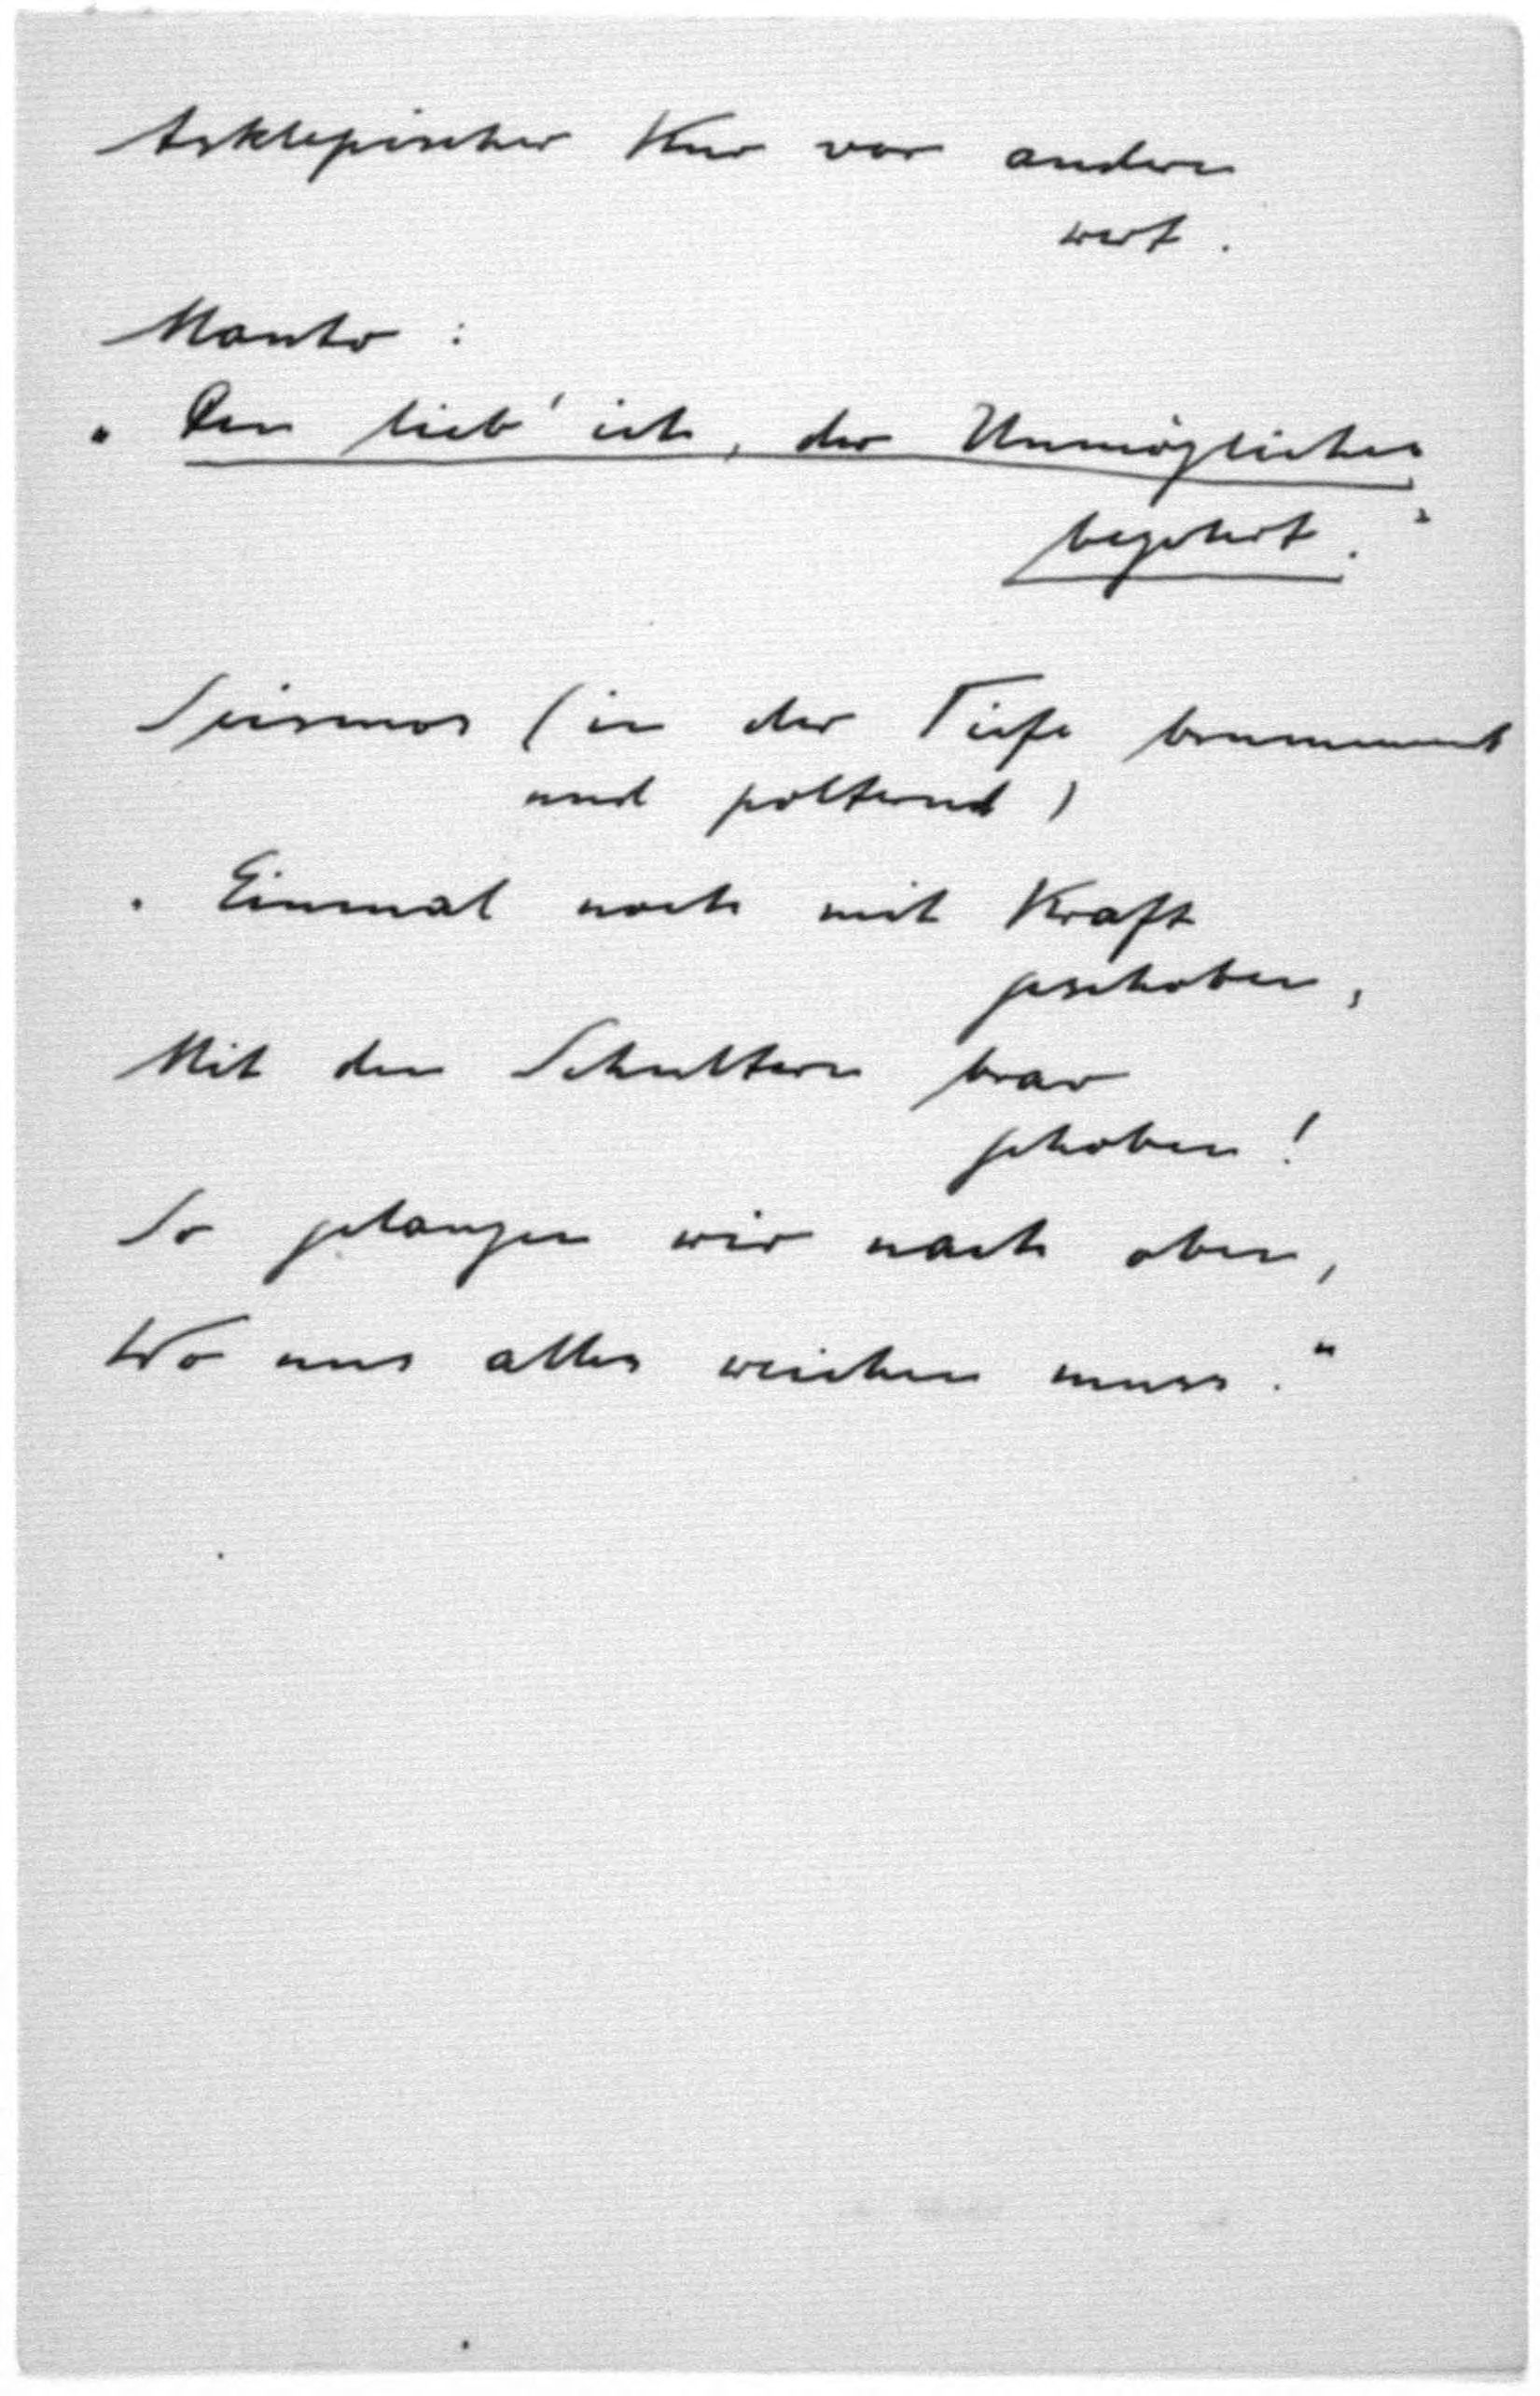 Asklepischer Kur vor andern
wert.
Manto:
"Den lieb' ich, der Unmögliches
begehrt."
Seismos (in der Tiefe brummend
und polternd)
"Einmal noch mit Kraft
geschoben,
Mit den Schultern brav
gehoben!
So gelangen wir nach oben,
Wo uns alles weichen muss."